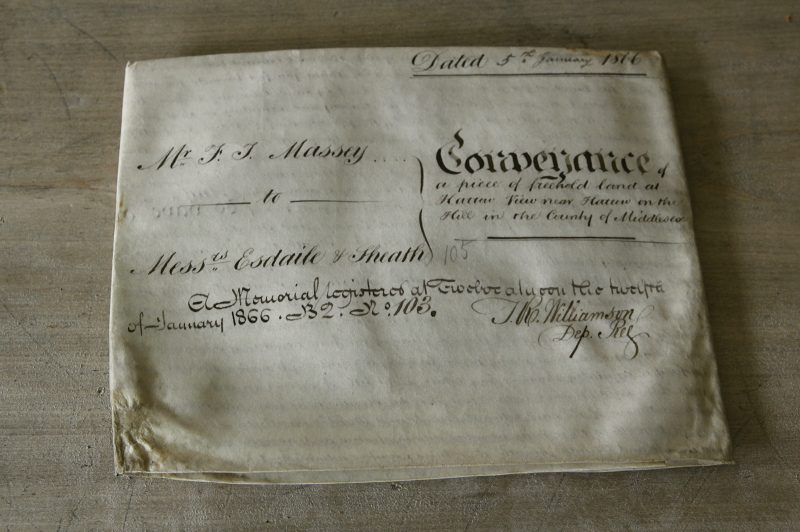 Dated 5th January 1866
Mr. F. J. Massey
to
Messrs. Esdaile & Sheath
Conveyance of
a piece of freehold land at
Harrow View near Harrow on the
Hill in the County of Middlesex
105
A Memorial registered at Twelve at noon the twelfth
of January 1866. B2. No. 103.
Williamson
Dep. Reg